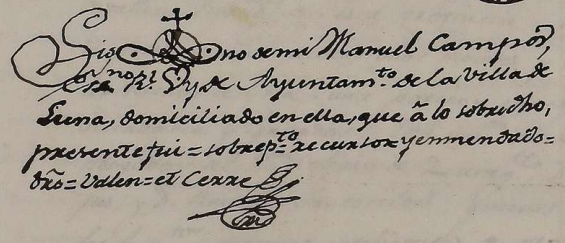 Sig no de mi Manuel Campos,
Es.no R.l Vy de Ayuntam.to de la Villa de
Luna, domiciliado en ella, que â lo sobredho,
presente fui = sobrep.to = recurso = y enmendado =
dro = Valen = et Cerre